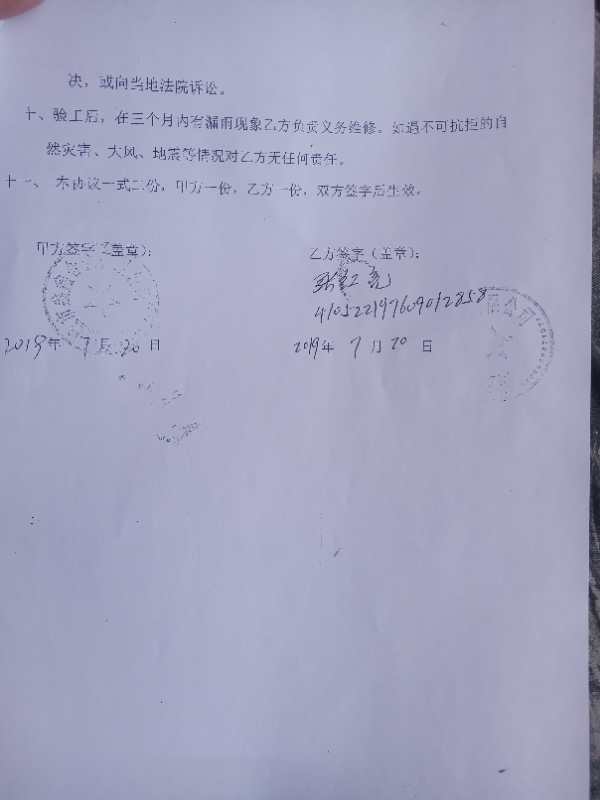 决，或向当地法院诉讼。
十、验工后，在三个月内有漏雨现象乙方负责义务维修。如遇不可抗拒的自
然灾害、大风、地震等情况对乙方无任何责任。
十一、 本协议一式二份，甲方一份，乙方一份，双方签字后生效。
甲方签字（盖章）：
乙方签字（盖章）：
张红亮
410522197609012858
限公司
2019年 7 月 20 日
2019年 7 月 20 日